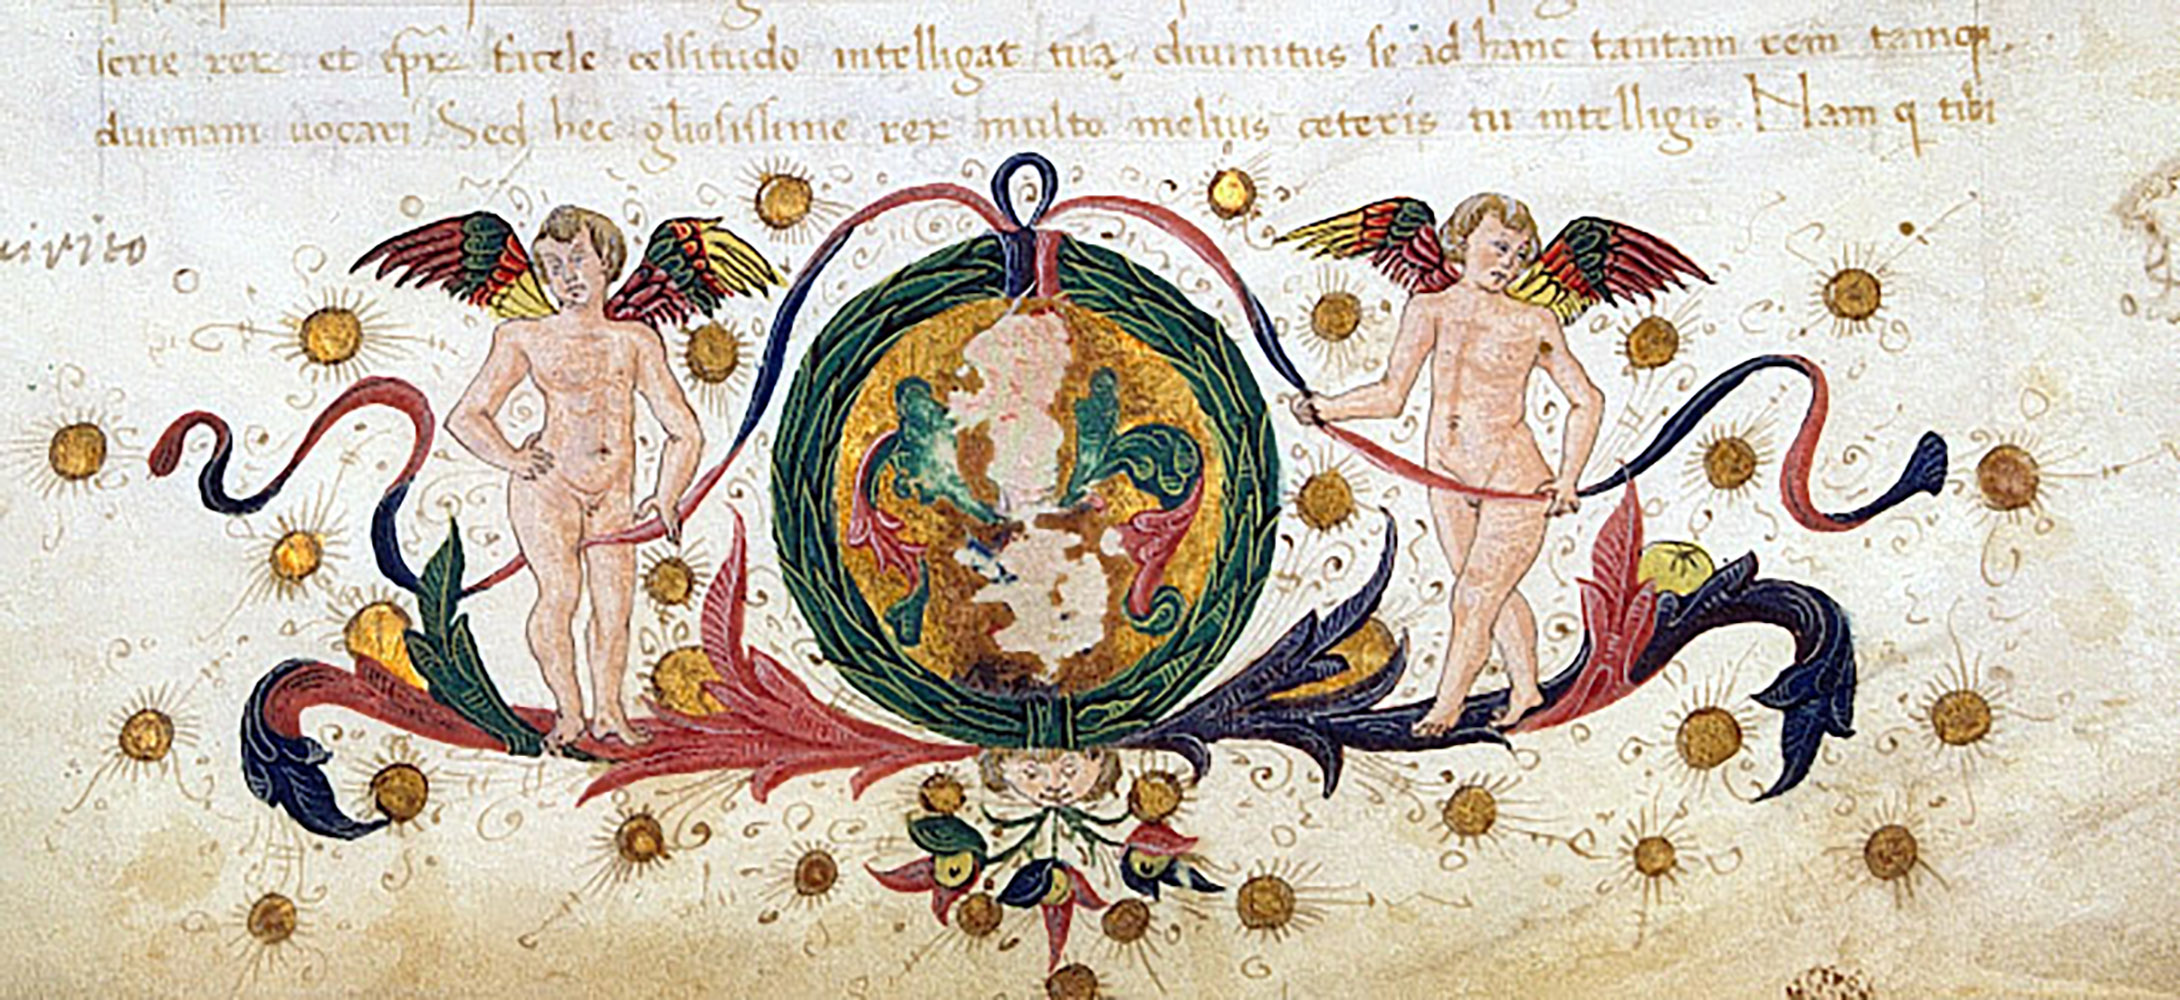 serie rex et sp̄r facile celsitudo intelligat tua, diuinitus se ad hanc tantam rem tamq̄
diuinam uocari Sed hec gl̄iosissime rex multo melius ceteris tu intelligis. Nam q tibi